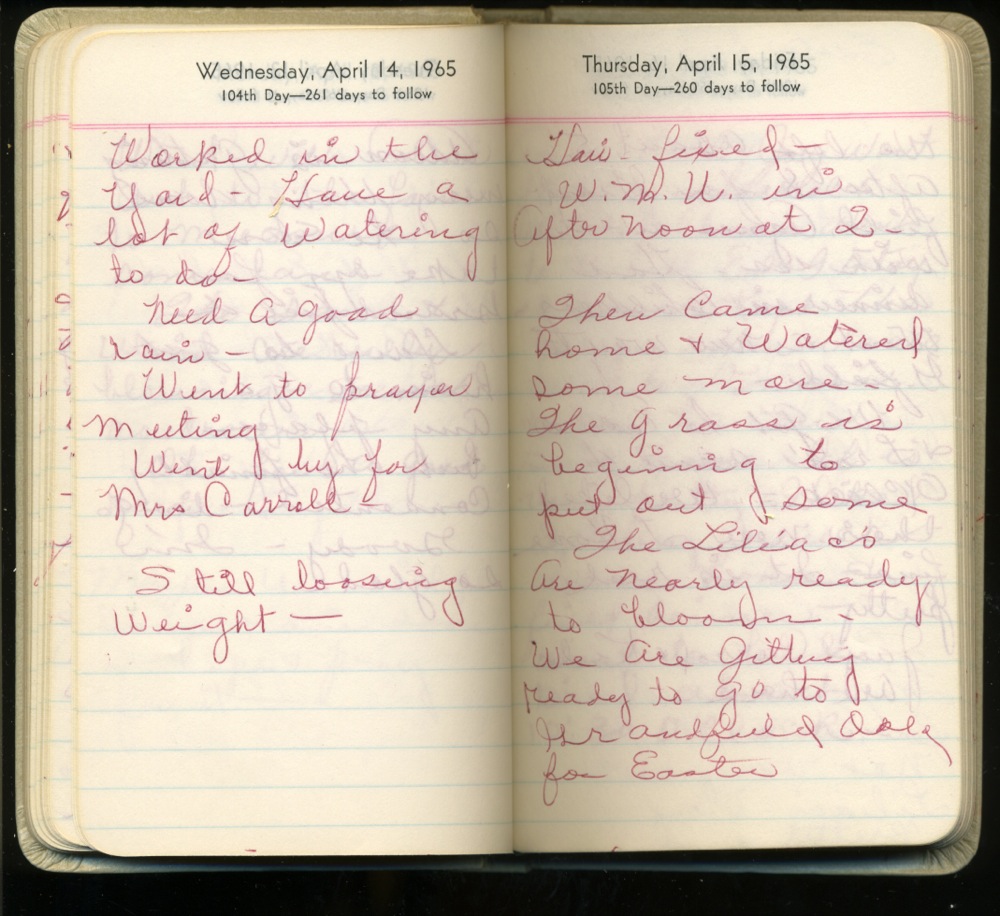 Wednesday, April 14, 1965
104th Day—261 days to follow
Worked in the
Yard - Have a
lot of Watering
to do -
Need A good
rain -
Went to prayer
Meeting
Went by for
Mrs Carroll -
Still loosing
Weight —
Thursday, April 15, 1965
105th Day—260 days to follow
Hair fixed -
W.M.U. in
After noon at 2 -
Then Came
home & Watered
some more -
The grass is
begining to
put out some
The Liliacs
Are nearly ready
to bloom -
We Are Gitting
ready to go to
for Easter